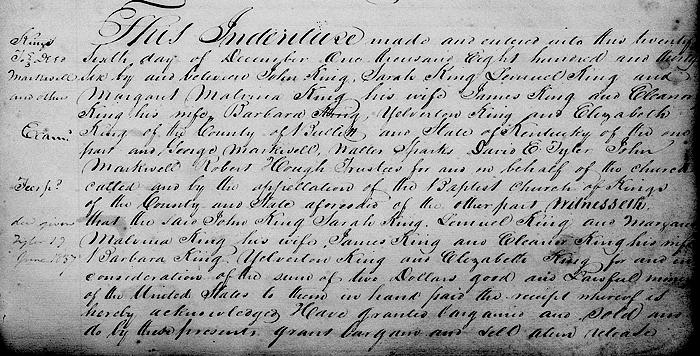 This Indenture made and entered into this twenty
sixth day of December One thousand Eight hundred and thirty
six by and between John King, Sarah King Lemuel King and
Margaret Malvina King his wife James King and Eleanor
King his wife, Barbara King, Yelverton King and Elizabeth
King of the County of Bullitt and State of Kentucky of the one
part and George Markwell, Walter Sparks David E Tyler John
Markwell Robert Hough Trustees for and in behalf of the church
called and by the appellation of the Baptist Church of Kings
of the County and State aforesaid of the other part Witnesseth
that the said John King Sarah King, Lemuel King and Margaret
Malvina King his wife, James King and Eleanor King his wife
Barbara King, Yelverton King and Elizabeth King for and in
consideration of the sum of two Dollars good and Lawful money
of the United States to them in hand paid the receipt whereof is
hereby acknowledged Have granted bargained and sold and
do by these presents grant bargain and sell alien release
Kings
To Deed
Markwell
and others
Exam.
Fees pd
del given
Tyler 17
June 1837